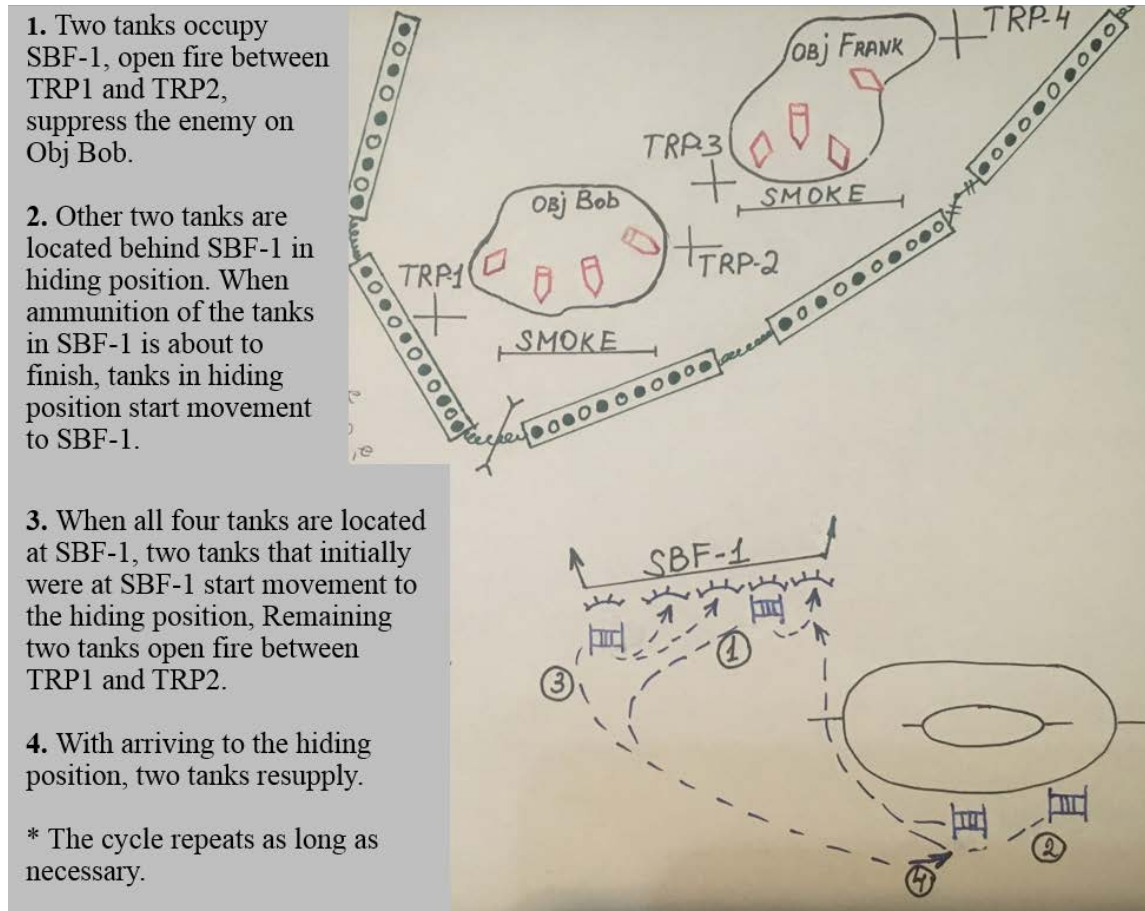 1. Two tanks occupy
SBF-1, open fire between
TRP1 and TRP2,
suppress the enemy on
Obj Bob.
2. Other two tanks are
located behind SBF-1 in
hiding position. When
ammunition of the tanks
in SBF-1 is about to
finish, tanks in hiding
position start movement
to SBF-1.
3. When all four tanks are located
at SBF-1, two tanks that initially
were at SBF-1 start movement to
the hiding position, Remaining
two tanks open fire between
TRP1 and TRP2.
4. With arriving to the hiding
position, two tanks resupply.
* The cycle repeats as long as
necessary.
TRP-4
Obj FRANK
TRP-3
SMOKE
Obj Bob
TRP-2
TRP-1
SMOKE
SBF-1
1
3
2
4